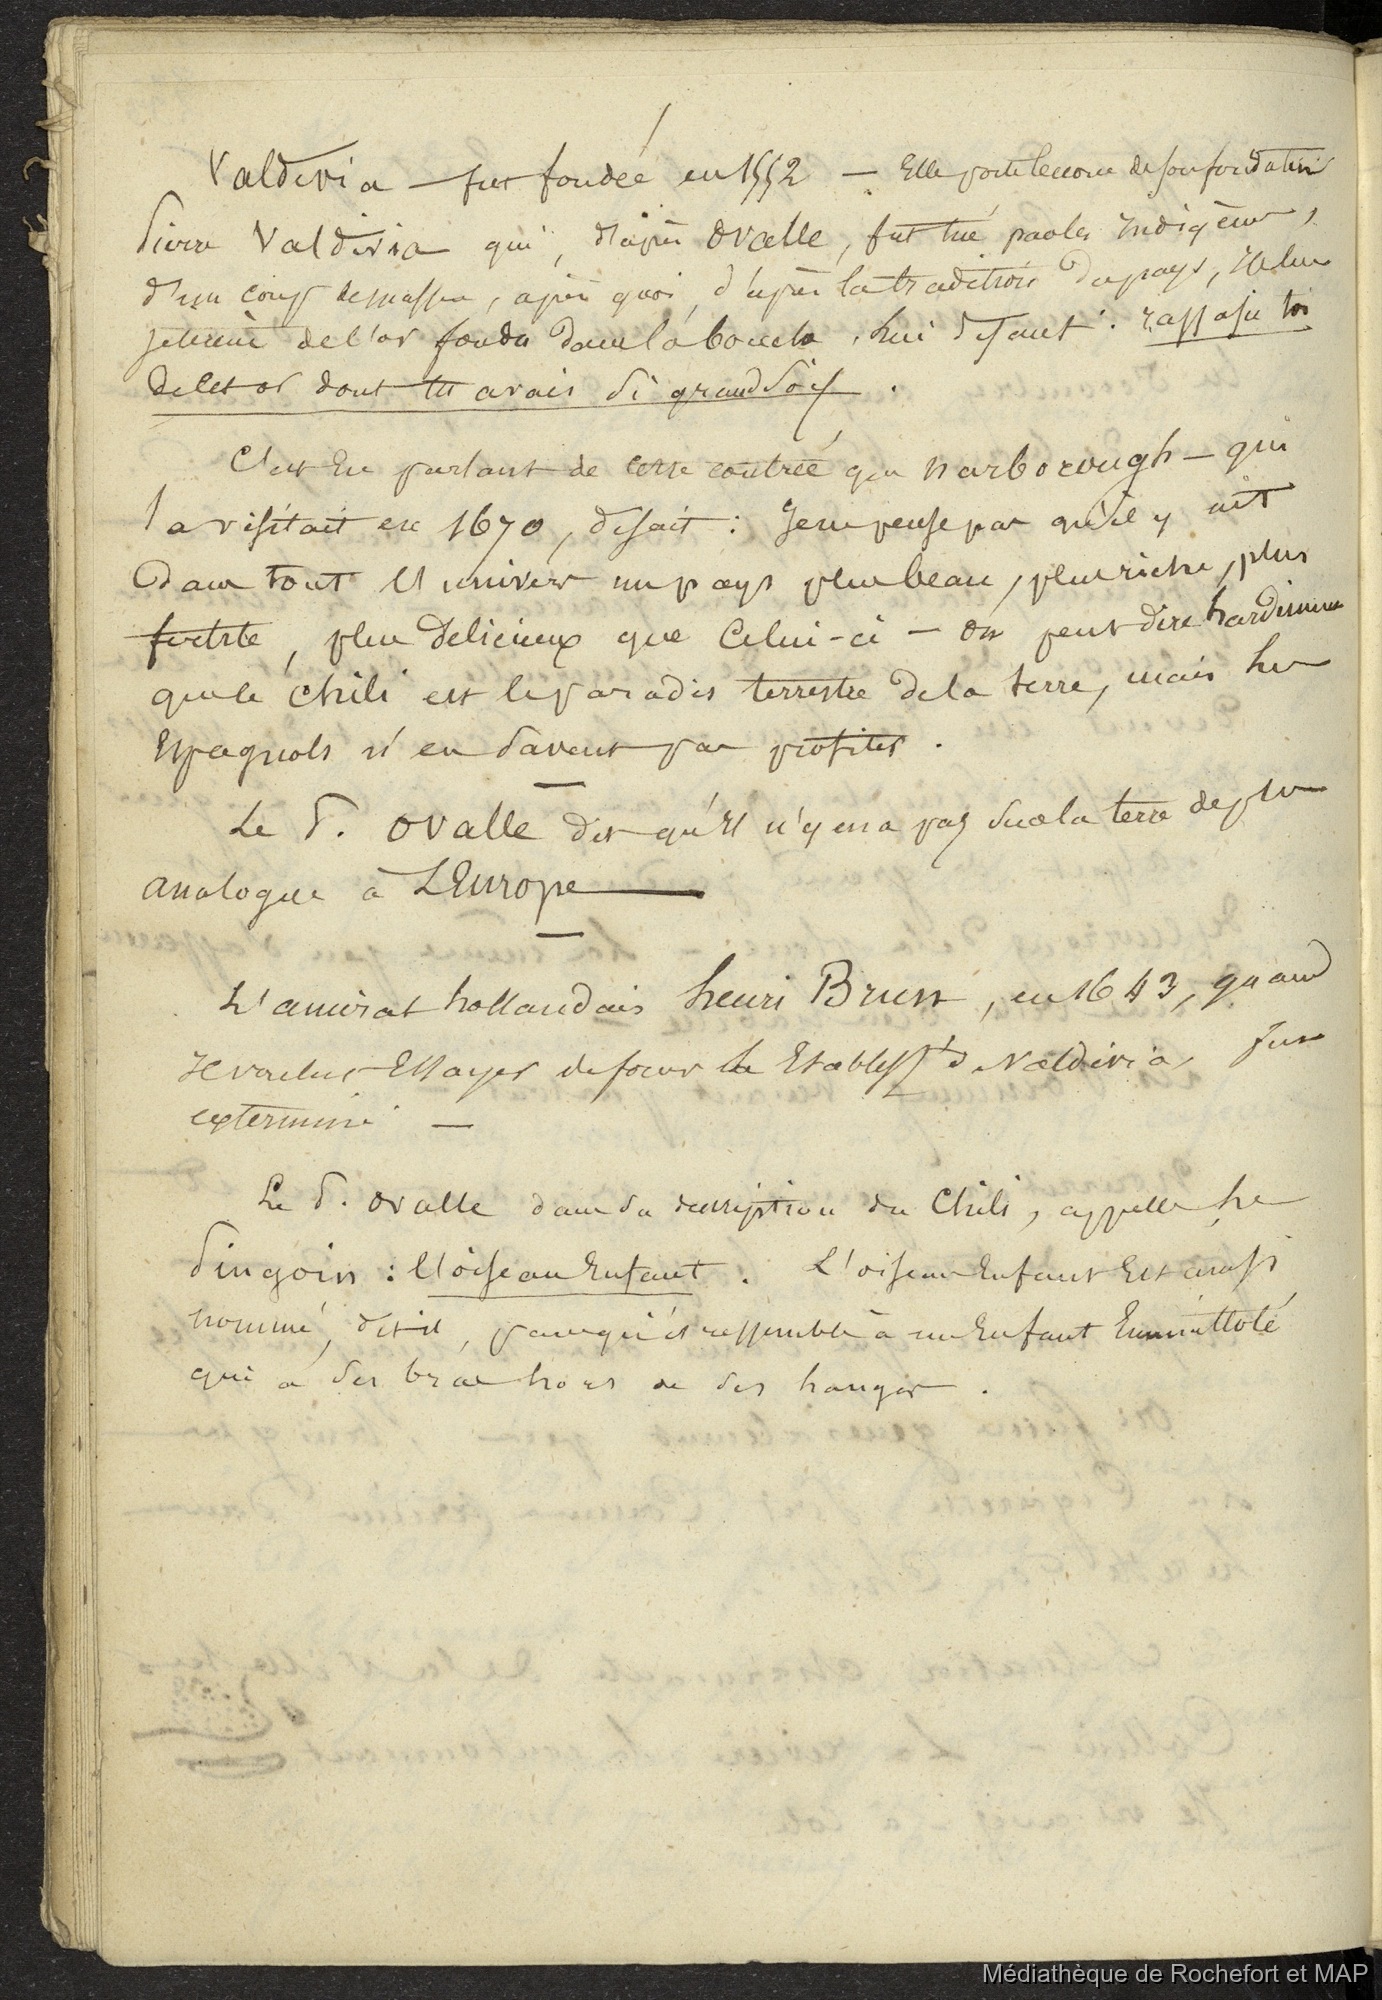 Valdivia — fut fondée en 1552 — Elle porte le nom de son fondateur
Pierre Valdivia qui, d'après Ovalle, fut tué par les Indigènes,
d'un coup de massue, après quoi, d'après la tradition du pays, Ils lui
jetèrent de l'or fondu dans la bouche, lui disant : rassasie toi
de cet or dont tu avais si grand soif.
C'est En parlant de cette contrée que Narborough — qui
la visitait en 1670, disait : Je ne pense pas qu'il y ait
dans tout l'univers un pays plus beau, plus riche, plus
fertile, plus délicieux que celui-ci — on peut dire hardiment
que le Chili est le paradis terrestre de la terre, mais les
Espagnols n'en savent pas profiter.
Le P. Ovalle dit qu'Il n'y en a pas sur la terre de plus
analogue à L'Europe —
L'amiral hollandais henri Brun, en 1643, quand
Il voulut Essayer de forcer les Establisst de Valdivia, fut
exterminé —
Le P. Ovalle dans sa description du Chili, appelle les
Pingoins : l'oiseau Enfant. L'oiseau Enfant Est ainsi
nommé, dit-il, parcequ'il ressemble à un Enfant Emmailloté
qui a ses bras hors de ses langes.
Médiathèque de Rochefort et MAP